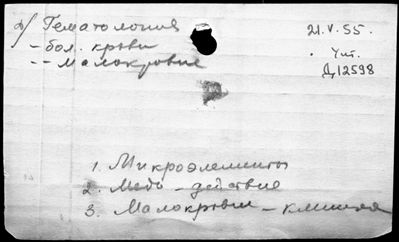 д/ Гематология
- бол. крови
-- малокровие
21.V.55.
Чит.
Д12598
1. Микроэлементы
2. Медь - действие
3. Малокровие - клиника